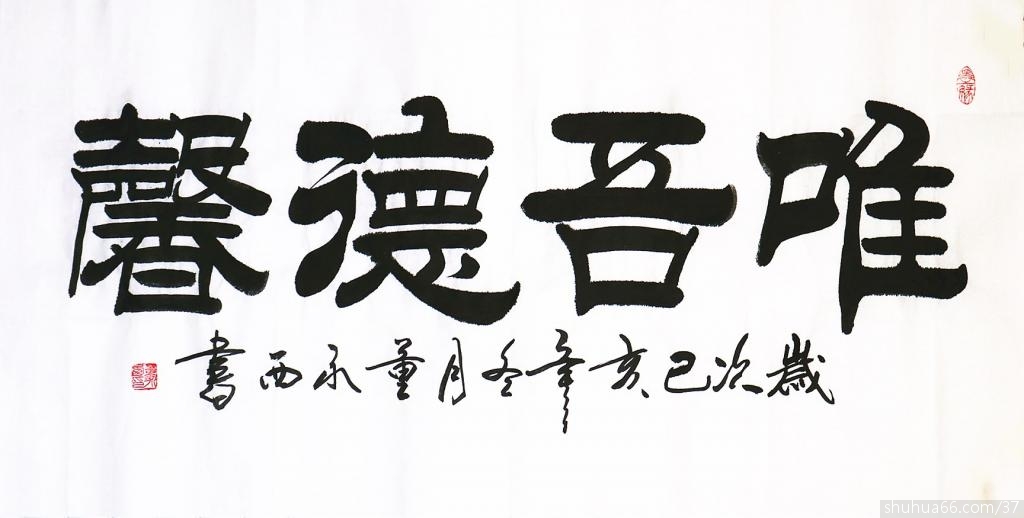 唯吾德馨
歲次己亥年冬月董永西書
shuhua66.com/37